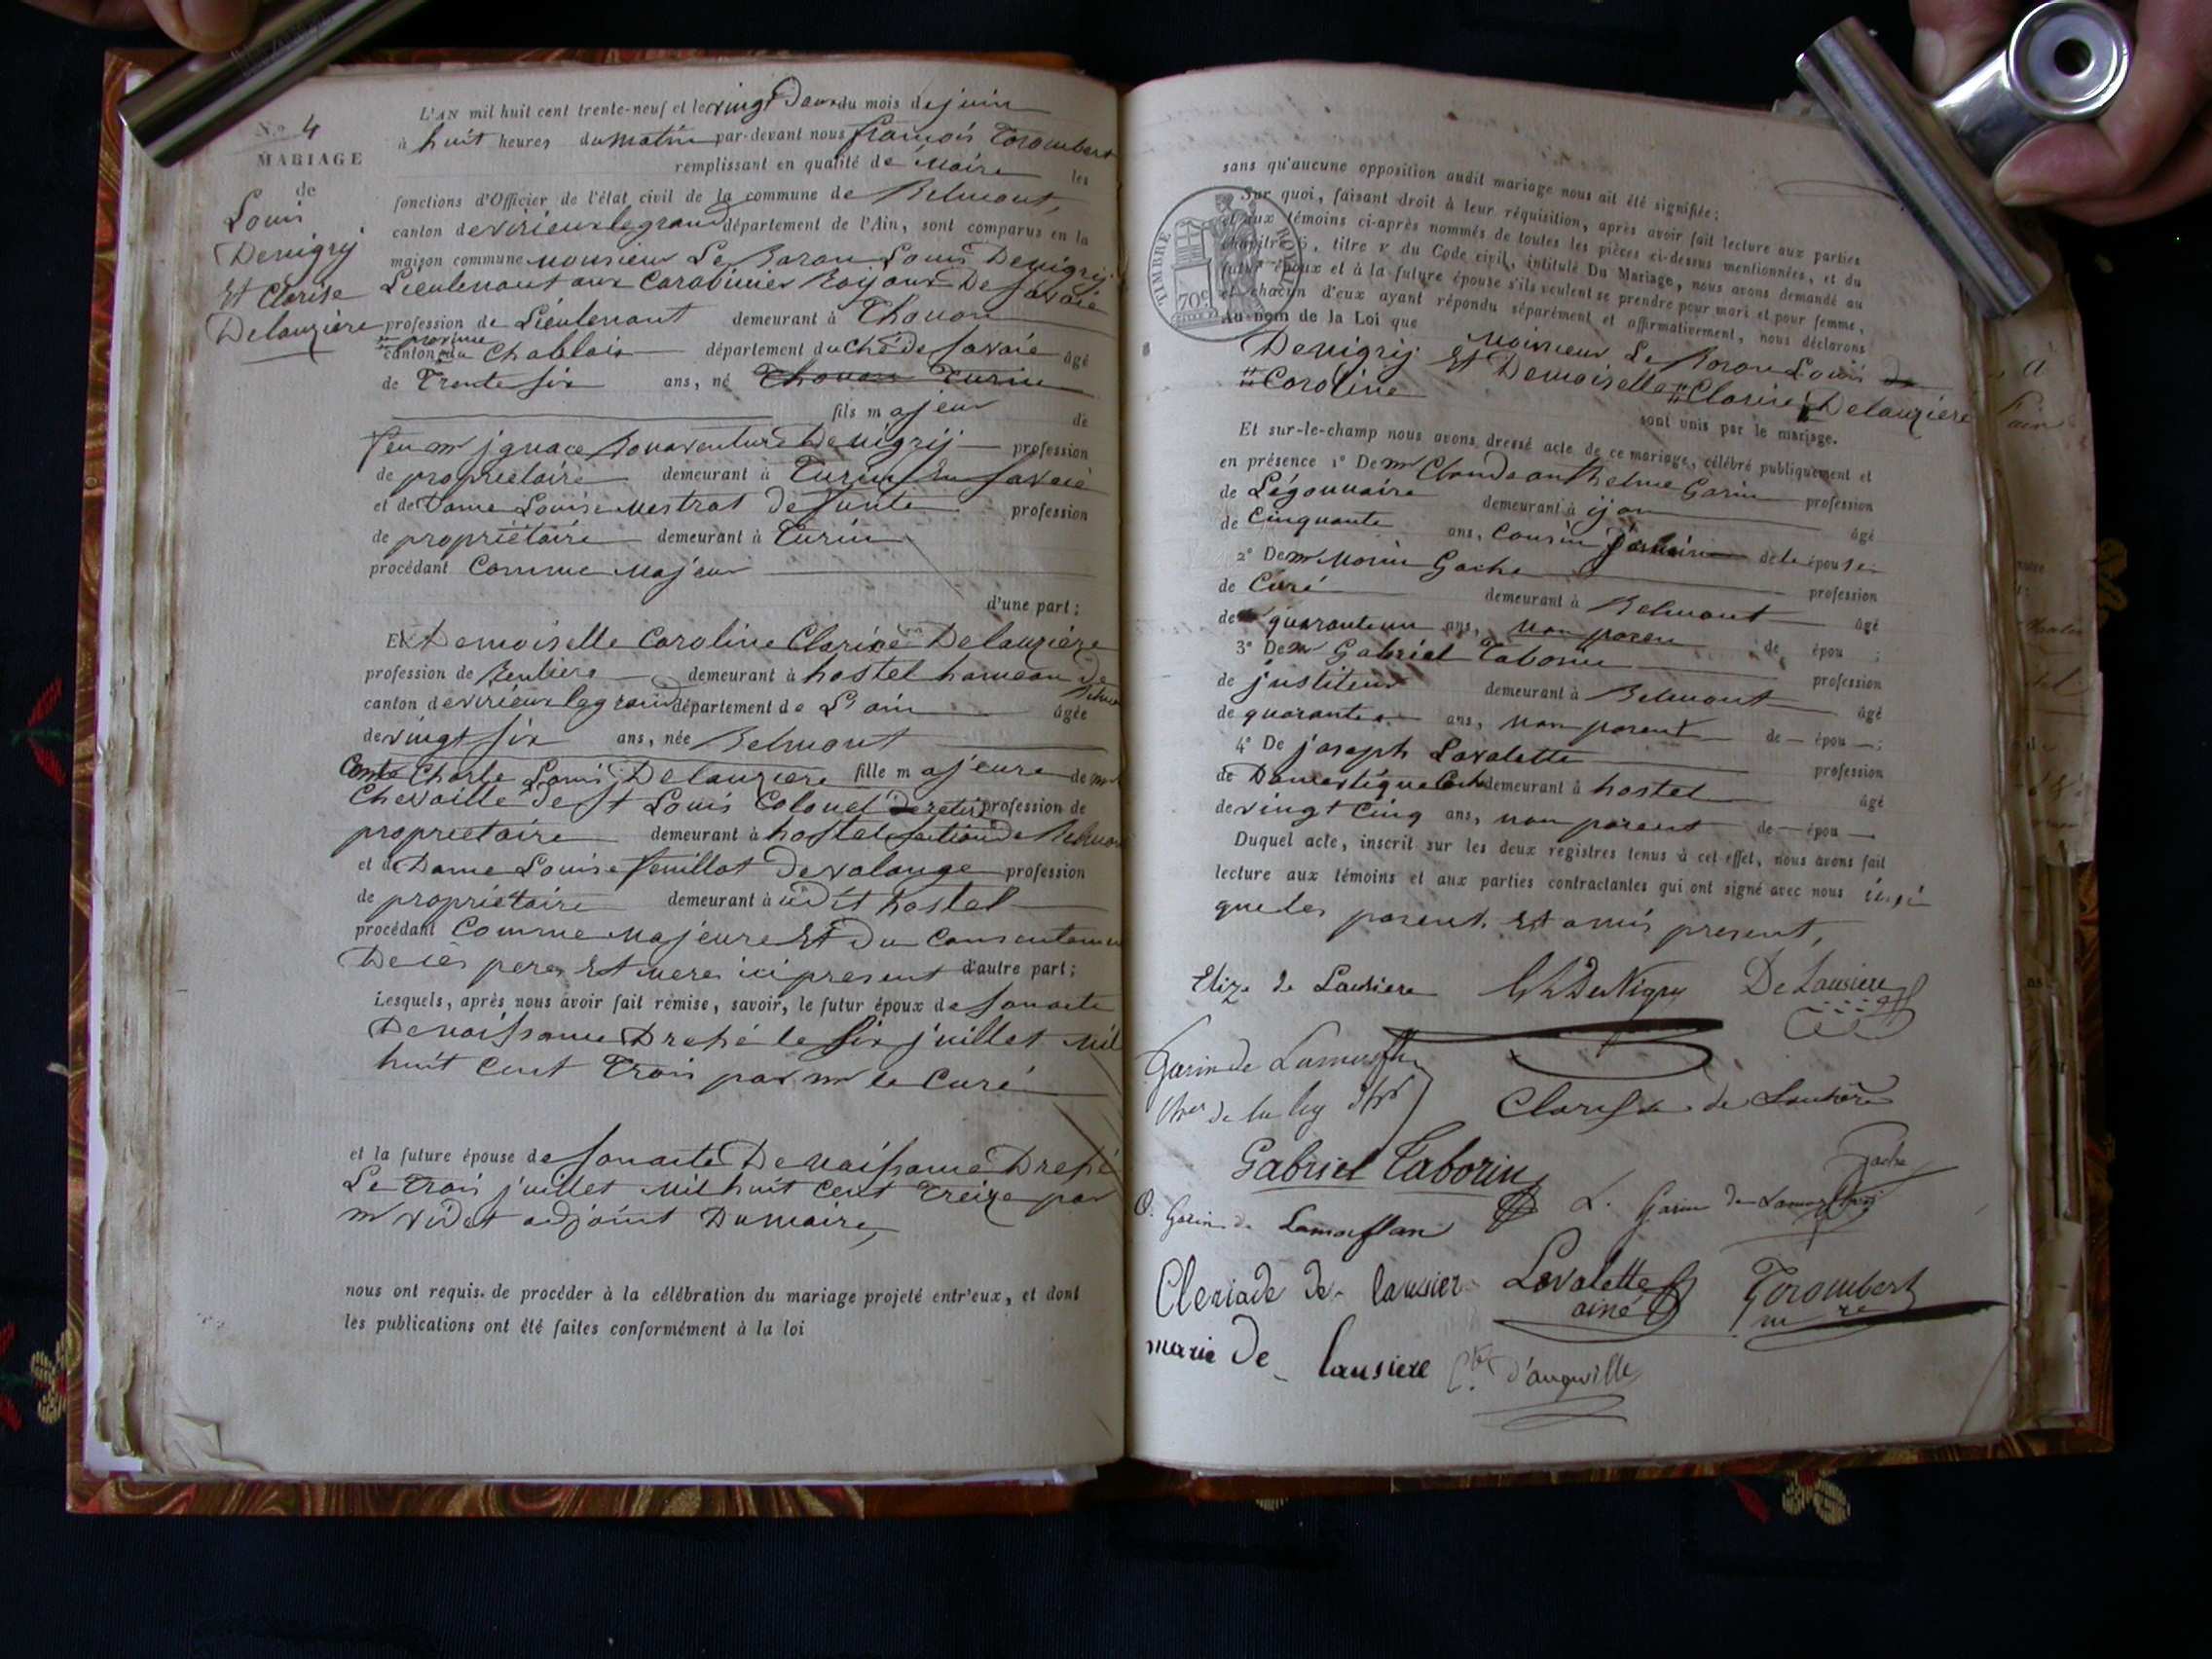 L'AN mil huit cent trente-neuf et le vingt Deux du mois de juin
N.º 4
à huit heures du matin par-devant nous françois Torombert
MARIAGE
remplissant en qualité de Maire les
de
fonctions d'Officier de l'état civil de la commune de Belmont,
Louis
canton de virieux le grand département de l'Ain, sont comparus en la
Devigrij
maison commune monsieur Le Baron Louis Devigrij
Et Clarise
Lieutenant aux Carabinier Roijaux De Savoie
Delauzière
profession de Lieutenant demeurant à Thonon
province
canton du Chablais département du ché de Savoie âgé
de Trente six ans, né Thonon Turin
fils majeur de
feu mr jgnace Bonaventure Devigrij profession
de propriétaire demeurant à Turin En Savoie
et de Dame Louise Mestrat Defunte profession
de propriétaire demeurant à Turin
procédant Comme Majeur
d'une part;
Et Demoiselle Caroline Clarice Delauzière
profession de Rentiere demeurant à hostel hameau de
Belmont
canton de virieux le grand département de L'ain âgée
de vingt six ans, née Belmont
Comte Charle Louis Delauziere fille majeure de mr
Chevaille de St Louis Colonel De retir profession de
propriétaire demeurant à hostel section De Belmont
et de Dame Louise feuillot Devalange profession
de propriétaire demeurant à udit hostel
procédant Comme Majeure Et Du Consentement
De ces peres Et meres ici present d'autre part;
Lesquels, après nous avoir fait remise, savoir, le futur époux de Son acte
De naissance Dressé le Six juillet Mil
huit Cent Trois par mr le Curé
et la future épouse de Son acte De naissance Dressé
Le trois juillet Mil huit Cent Treize par
mr videt adjoint Du maire,
nous ont requis de procéder à la célébration du mariage projeté entr'eux, et dont
les publications ont été faites conformément à la loi
sans qu'aucune opposition audit mariage nous ait été signifiée;
Sur quoi, faisant droit à leur réquisition, après avoir fait lecture aux parties
et aux témoins ci-après nommés de toutes les pièces ci-dessus mentionnées, et du
chapitre 6, titre v du Code civil, intitulé Du Mariage, nous avons demandé au
futur époux et à la future épouse s'ils veulent se prendre pour mari et pour femme,
et chacun d'eux ayant répondu séparément et affirmativement, nous déclarons
Au nom de la Loi que
TIMBRE ROYAL
70c
Monsieur Le Baron Louis
Devigrij Et Demoiselle Clarise Delauziere
Caroline
sont unis par le mariage.
Et sur-le-champ nous avons dressé acte de ce mariage, célébré publiquement et
en présence 1º De mr Claude anthelme Garin profession
de Légonnaire demeurant à ijon âgé
de Cinquante ans, Cousin de le épouse
2º De mr Morin Gache profession
de Curé demeurant à Belmont âgé
de quarante un ans, non paren de épou ;
3º De mr Gabriel Taborin profession
de justiteur demeurant à Belmont âgé
de quarante ans, non parent de épou ;
4º De joseph Lavalette profession
de Domestique demeurant à hostel âgé
de vingt Cinq ans, non parent de épou
Duquel acte, inscrit sur les deux registres tenus à cet effet, nous avons fait
lecture aux témoins et aux parties contractantes qui ont signé avec nous insi
que les parent Et amis present,
Eliza de Lausiere DeVigry De Lausiere
Garin de Lamorflan
Clarisse de Lausiere
Gabriel Taborin
Gache
O. Garin de Lamorflan L. Garin de Lamorflan
Cleriade De lausier Lavalette Torombert
ainé m re
marie De lausiere d'angeville